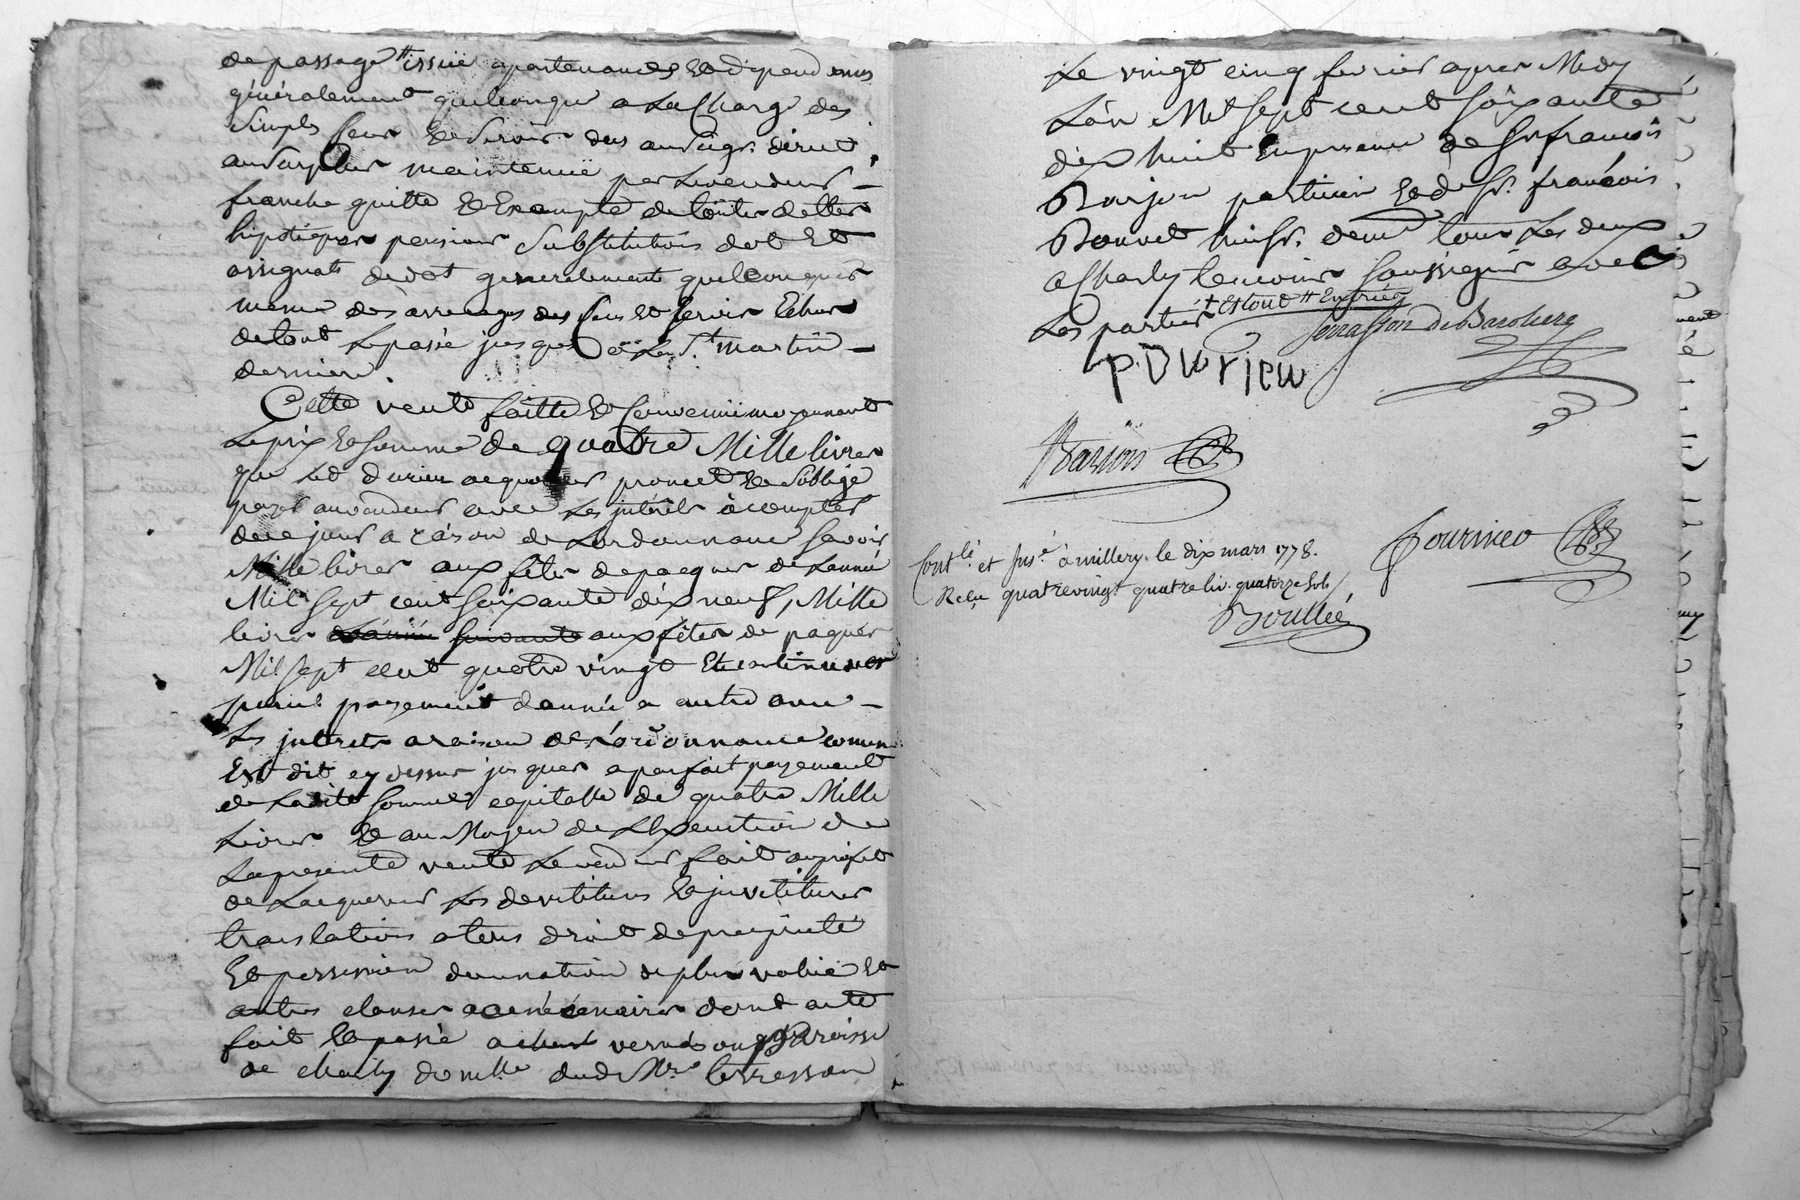 de passage # issüe apartenances et dependences
généralement quelconque a La Charge des
Simples Cens et Servis deus au Seigr. direct
au Surplus maintenüe par Levendeur —
franche quitte et Exempte de toutes dettes
hipotèques pensions Substitutions dot et
assignats de dot generalement quelconques
meme des arrerages des Cens et Servis Echus
detout Lepassé jusques a La St. martin —
derniere.
Cette vente faitte et Convenüe moyennant
Leprix et Somme de quatre Mille livres
que Led Durieu acquereur promet et Soblige
payer auvendeur avec Les jnterets àcompter
dece jour a raison de Lordonnance Savoir
Mille livres aux fêtes depacques de Lannée
Mil Sept cent Soixante dix neuf, Mille
livres aux fêtes de paques
Mil Sept cent quatre vingt Et continuer
pareil payement d'année a autre avec —
Les jnterets a raison de l'ordonnance comme
Est dit cy dessus jusques a parfait payement
de Ladite Somme capitalle de quatre Mille
Livres et au Moyen de L'Execution de
Lapresente vente Levendeur fait au profit
de Lacquereur Les devetitures et jnvetitures
translations atous droit de propriété
Et possession donnation de plus value et
autres clauses acenécénaires dont acte
fait et passé a vernaison parroisse
de charly domlle dud Mre
Le vingt cinq fevrier apres Midy
Lan Mil Sept cent Soixante
dix huit En presence de Sr françois
Barjon praticien et de Sr. françois
Bonnet huissr. demt tous Les deux
a Charly temoins Soussignés avec
Les parties # Et tout # Entrée
de Baroliere
P. DURIEU
Barjon
Fournier
Contlé. et Jnsé. à millery. le dix mars 1778.
Reçu quatrevingt quatre liv. quatorze sols
Boullée